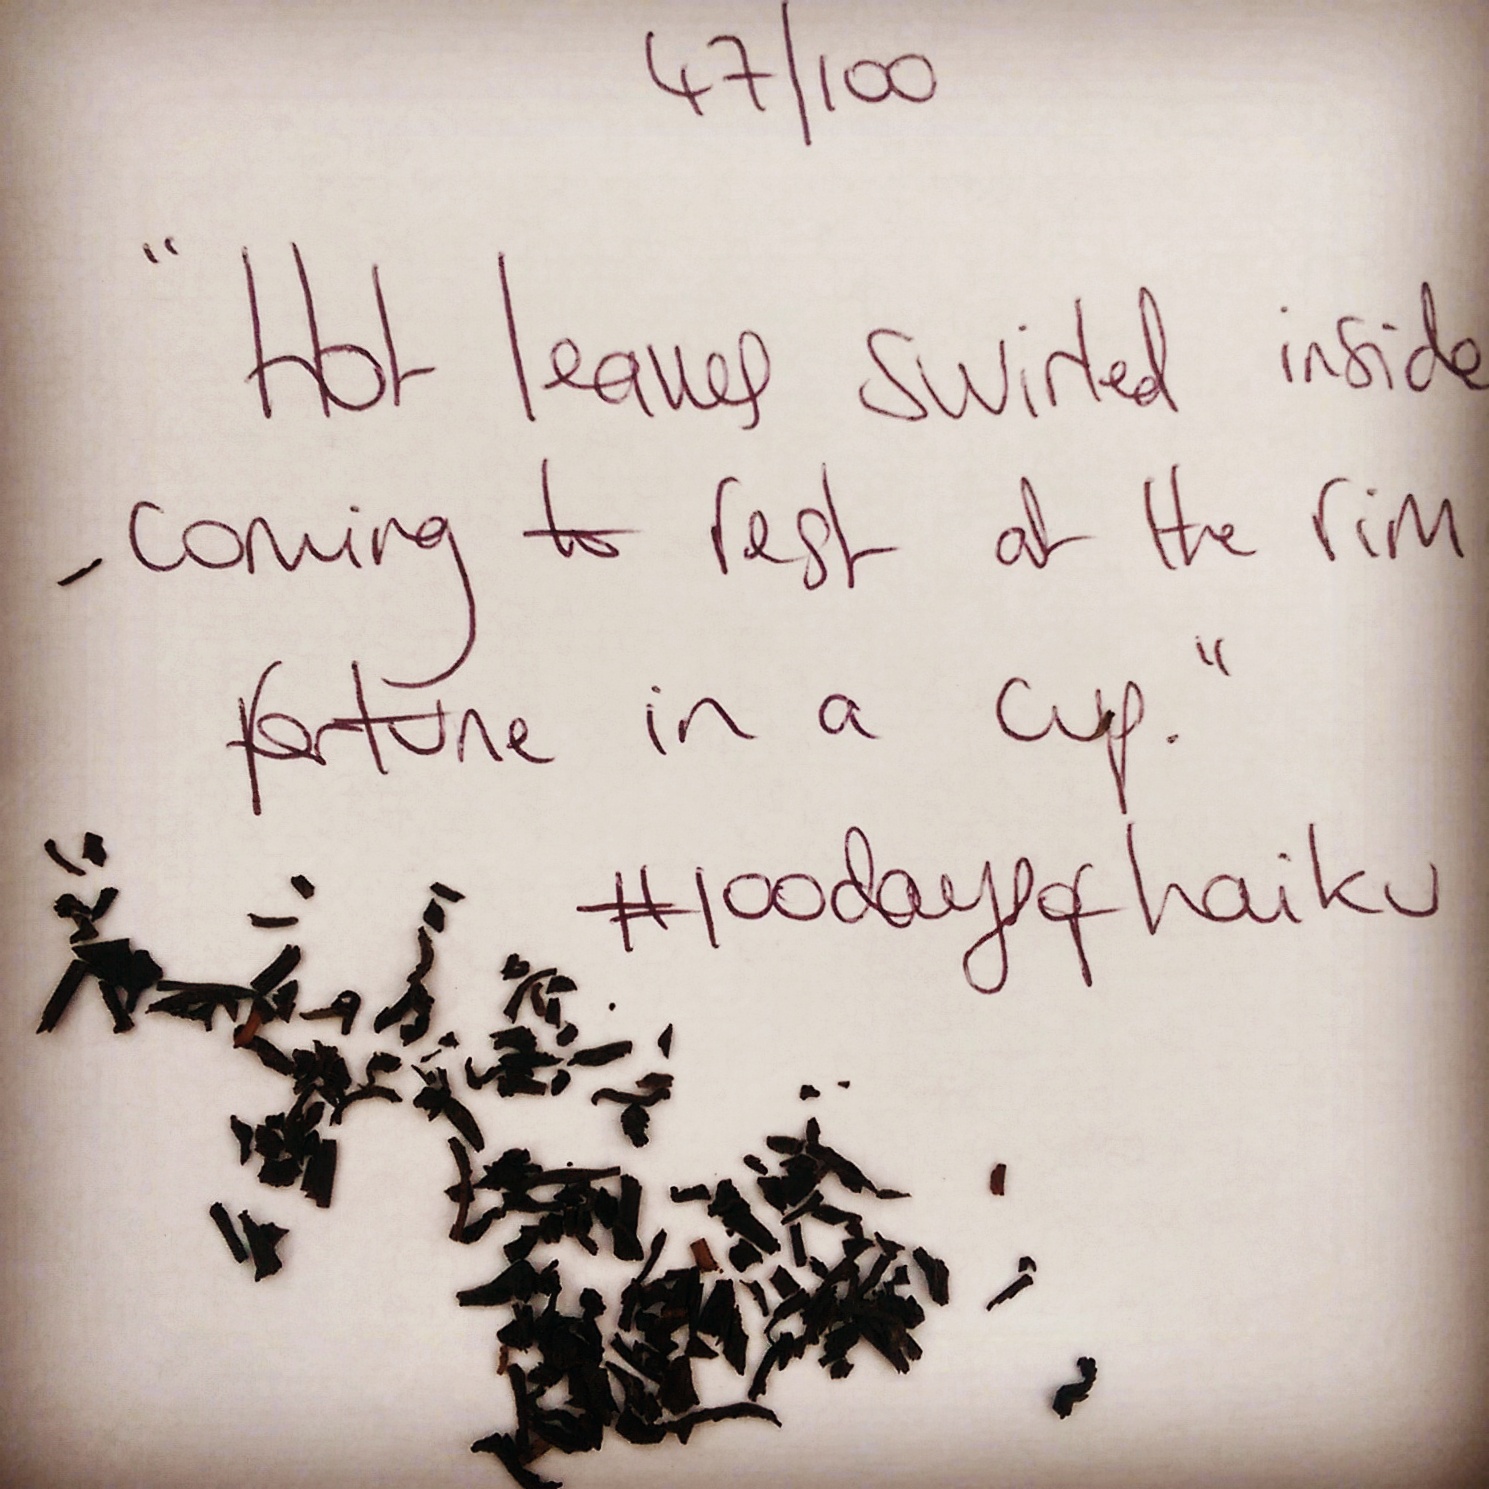 47/100
"Hot leaves swirled inside
coming to rest at the rim
fortune in a cup."
#100daysofhaiku